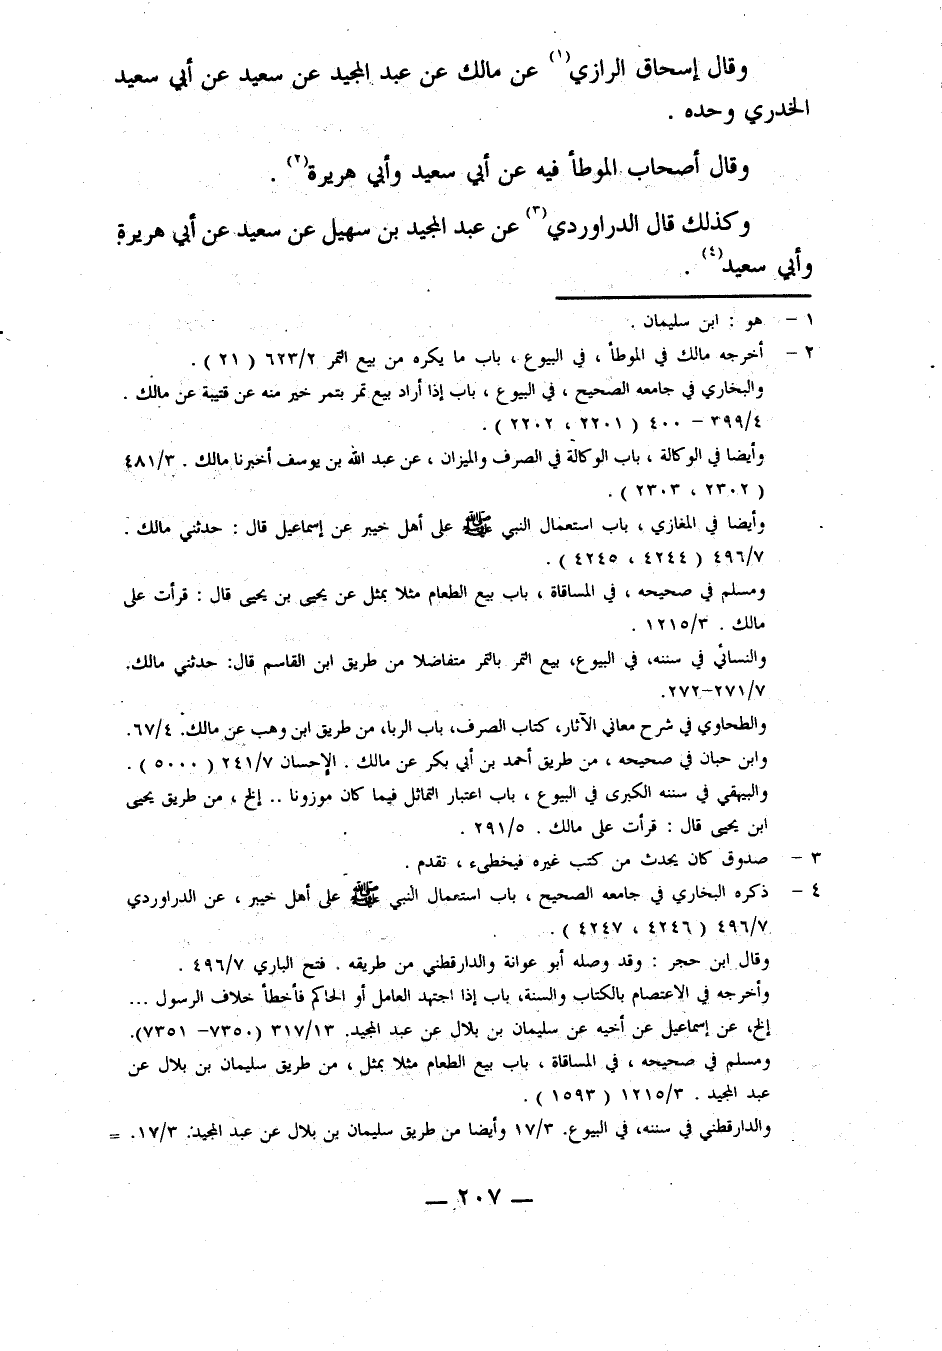 وقال إسحاق الرازي(١) عن مالك عن عبد المجيد عن سعيد عن أبي سعيد
الخدري وحده .
وقال أصحاب الموطأ فيه عن أبي سعيد وأبي هريرة(٢) .
وكذلك قال الدراوردي(٣) عن عبد المجيد بن سهيل عن سعيد عن أبي هريرة
وأبي سعيد(٤) .
١ - هو : ابن سليمان .
٢ - أخرجه مالك في الموطأ ، في البيوع ، باب ما يكره من بيع التمر ٦٢٣/٢ ( ٢١ ) .
والبخاري في جامعه الصحيح ، في البيوع ، باب إذا أراد بيع تمر بتمر خير منه عن قتيبة عن مالك .
٣٩٩/٤ - ٤٠٠ ( ٢٢٠١ ، ٢٢٠٢ ) .
وأيضا في الوكالة ، باب الوكالة في الصرف والميزان ، عن عبد الله بن يوسف أخبرنا مالك . ٤٨١/٣
( ٢٣٠٢ ، ٢٣٠٣ ) .
وأيضا في المغازي ، باب استعمال النبي ﷺ على أهل خيبر عن إسماعيل قال : حدثني مالك .
٤٩٦/٧ ( ٤٢٤٤ ، ٤٢٤٥ ) .
ومسلم في صحيحه ، في المساقاة ، باب بيع الطعام مثلا بمثل عن يحيى بن يحيى قال : قرأت على
مالك . ١٢١٥/٣ .
والنسائي في سننه، في البيوع، بيع التمر بالتمر متفاضلا من طريق ابن القاسم قال: حدثني مالك.
٢٧١/٧-٢٧٢.
والطحاوي في شرح معاني الآثار، كتاب الصرف، باب الربا، من طريق ابن وهب عن مالك. ٦٧/٤.
وابن حبان في صحيحه ، من طريق أحمد بن أبي بكر عن مالك . الإحسان ٢٤١/٧ ( ٥٠٠٠ ) .
والبيهقي في سننه الكبرى في البيوع ، باب اعتبار التماثل فيما كان موزونا .. إلخ ، من طريق يحيى
ابن يحيى قال : قرأت على مالك . ٢٩١/٥ .
٣ - صدوق كان يحدث من كتب غيره فيخطىء ، تقدم .
٤ - ذكره البخاري في جامعه الصحيح ، باب استعمال النبي ﷺ على أهل خيبر ، عن الدراوردي
٤٩٦/٧ ( ٤٢٤٦ ، ٤٢٤٧ ) .
وقال ابن حجر : وقد وصله أبو عوانة والدارقطني من طريقه . فتح الباري ٤٩٦/٧ .
وأخرجه في الاعتصام بالكتاب والسنة، باب إذا اجتهد العامل أو الحاكم فأخطأ خلاف الرسول ...
إلخ، عن إسماعيل عن أخيه عن سليمان بن بلال عن عبد المجيد. ٣١٧/١٣ (٧٣٥٠- ٧٣٥١).
ومسلم في صحيحه ، في المساقاة ، باب بيع الطعام مثلا بمثل ، من طريق سليمان بن بلال عن
عبد المجيد . ١٢١٥/٣ ( ١٥٩٣ ) .
والدارقطني في سننه، في البيوع. ١٧/٣ وأيضا من طريق سليمان بن بلال عن عبد المجيد. ١٧/٣. =
— ٢٠٧ —